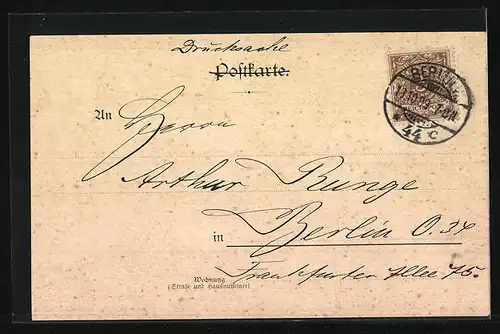 Drucksache
Postkarte.
An Herrn
Arthur Runge
in Berlin O. 34
Frankfurter Allee 75.
Wohnung
(Straße und Hausnummer)
BERLIN
44 c